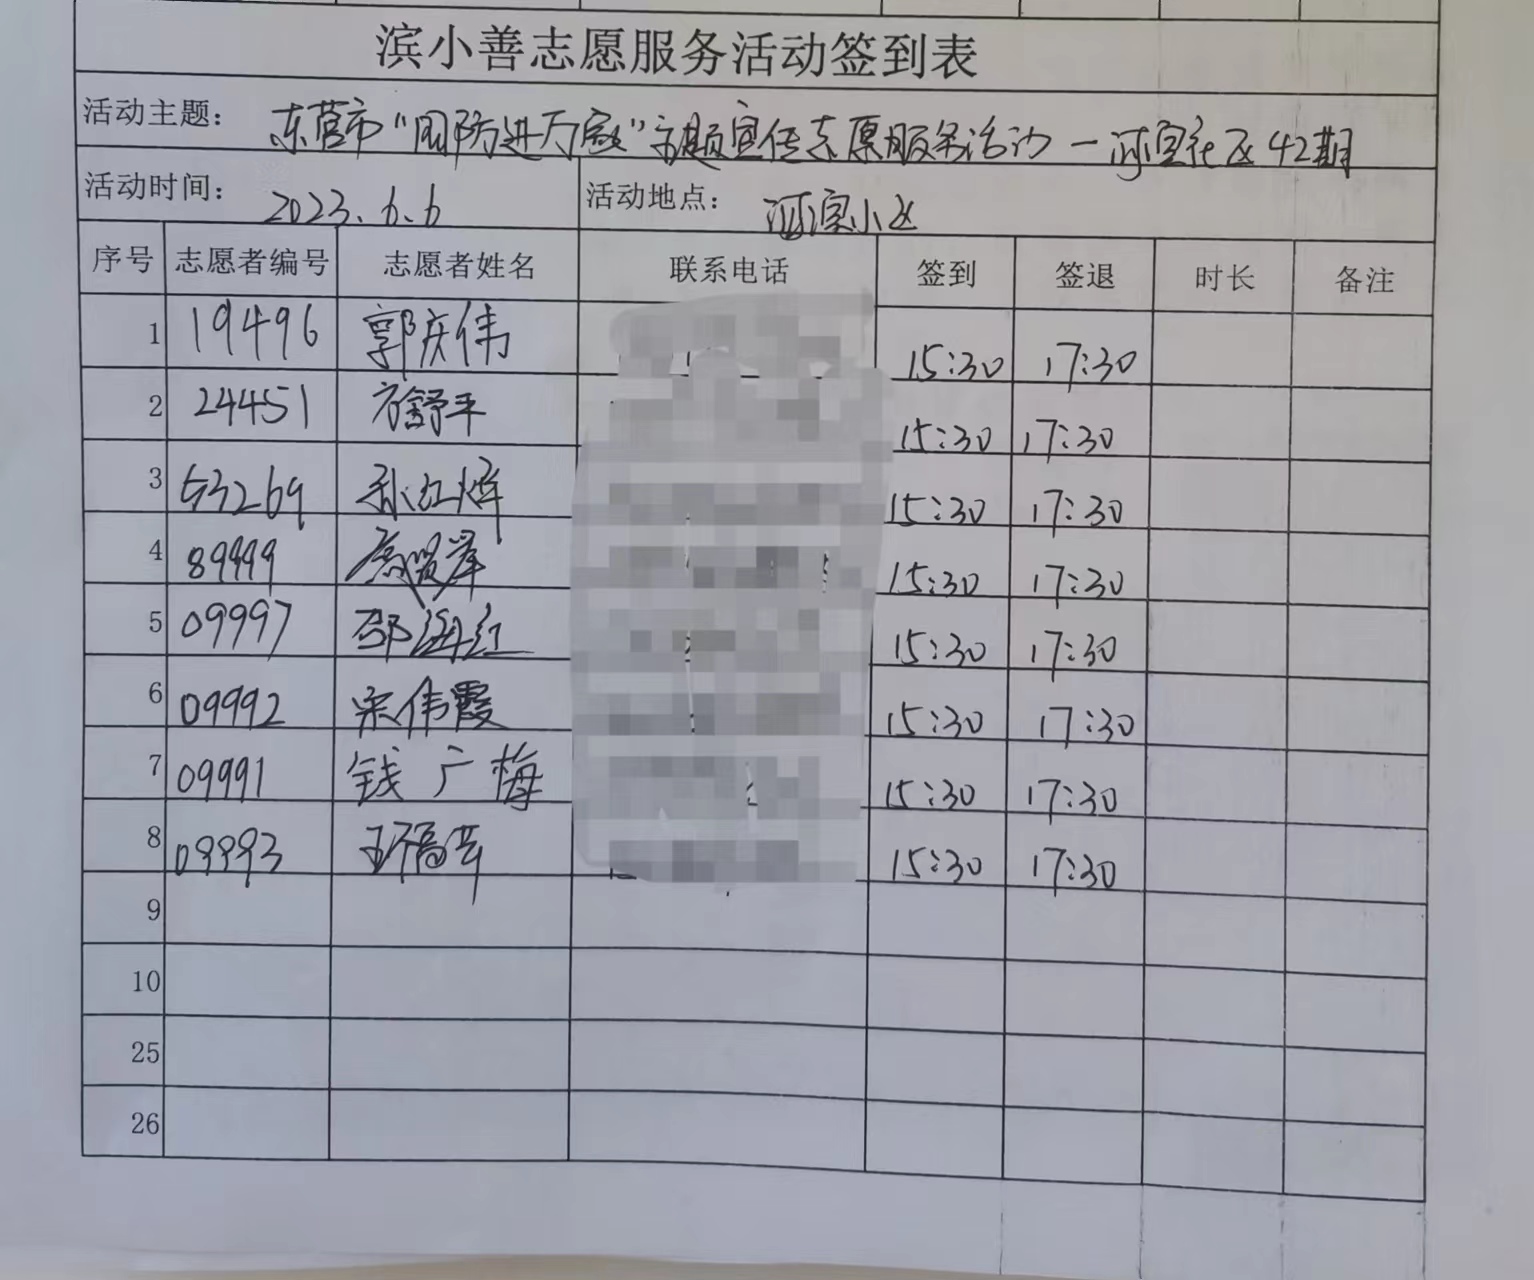 滨小善志愿服务活动签到表
活动主题： 东营市“国防进万家”主题宣传志愿服务活动一河滨社区42期
活动时间： 2023.6.6 活动地点： 河滨小区
序号 志愿者编号 志愿者姓名 联系电话 签到 签退 时长 备注
1 19496 郭庆伟 15:30 17:30
2 24451 方舒平 15:30 17:30
3 53269 孙红烨 15:30 17:30
4 89999 15:30 17:30
5 09997 邵海红 15:30 17:30
6 09992 宋伟霞 15:30 17:30
7 09991 钱广梅 15:30 17:30
8 09993 15:30 17:30
9
10
25
26